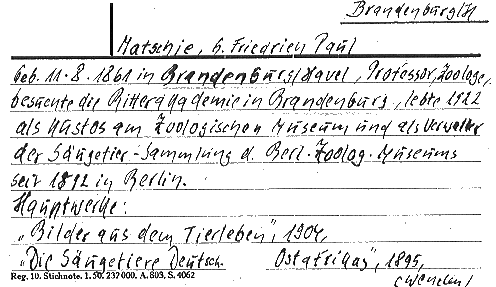 Brandenburg/H
Matschie, h. Friedrich Paul
Geb. 11.8.1861 in Brandenburg/Havel, Professor, Zoologe,
besuchte die Ritterakademie in Brandenburg, lebte 1922
als Kustos am Zoologischen Museum und als Verwalter
der Säugetier-Sammlung d. Berl. Zoolog. Museums
seit 1892 in Berlin.
Hauptwerke:
„Bilder aus dem Tierleben", 1904,
„Die Säugetiere Deutsch. Ostafrikas", 1895,
Reg. 10. Stichnote. 1. 50. 237 000. A. 803, S. 4062